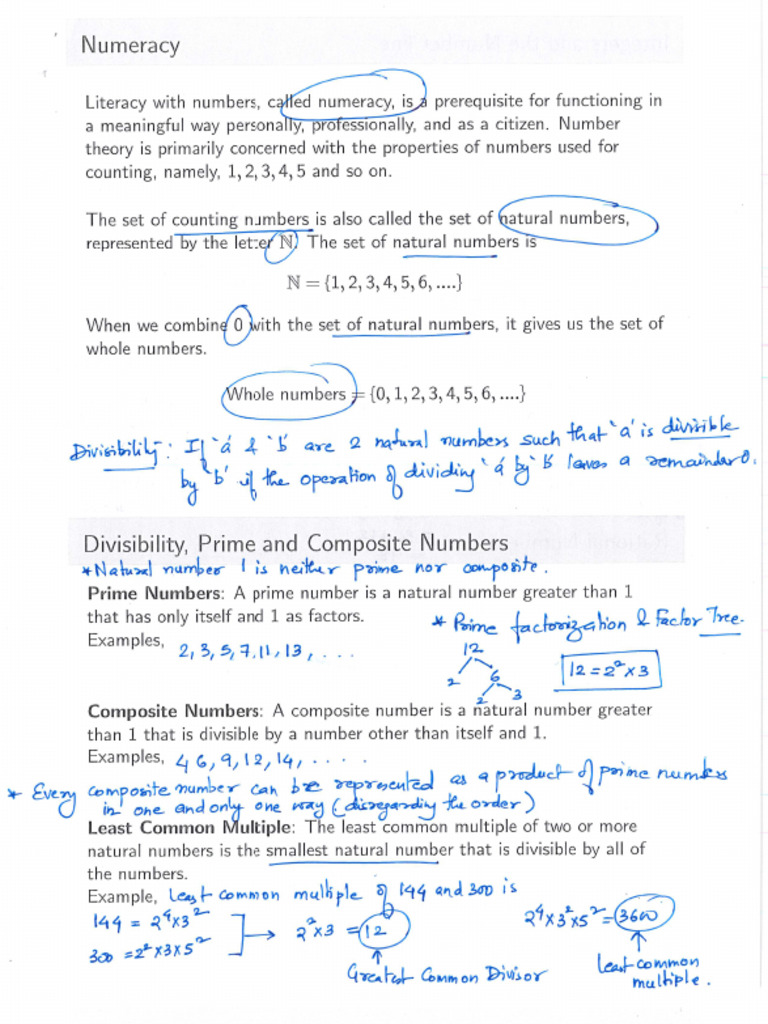 Numeracy
Literacy with numbers, called numeracy, is a prerequisite for functioning in
a meaningful way personally, professionally, and as a citizen. Number
theory is primarily concerned with the properties of numbers used for
counting, namely, 1, 2, 3, 4, 5 and so on.
The set of counting numbers is also called the set of natural numbers,
represented by the letter ℕ. The set of natural numbers is
ℕ = {1, 2, 3, 4, 5, 6, ....}
When we combine 0 with the set of natural numbers, it gives us the set of
whole numbers.
Whole numbers = {0, 1, 2, 3, 4, 5, 6, ....}
Divisibility: If 'a' & 'b' are 2 natural numbers such that 'a' is divisible
by 'b' if the operation of dividing 'a' by 'b' leaves a remainder 0.
Divisibility, Prime and Composite Numbers
* Natural number 1 is neither prime nor composite.
Prime Numbers: A prime number is a natural number greater than 1
that has only itself and 1 as factors.
* Prime factorization & Factor Tree.
Examples, 2, 3, 5, 7, 11, 13, . . .
12
2 6
2 3
12 = 2² x 3
Composite Numbers: A composite number is a natural number greater
than 1 that is divisible by a number other than itself and 1.
Examples, 4 6, 9, 12, 14, . . . .
* Every composite number can be represented as a product of prime numbers
in one and only one way (disregarding the order)
Least Common Multiple: The least common multiple of two or more
natural numbers is the smallest natural number that is divisible by all of
the numbers.
Example, Least common multiple of 144 and 300 is
144 = 2⁴x3²
300 = 2²x3x5²
→ 2²x3 = 12
2⁴x3²x5² = 3600
Greatest Common Divisor
Least common
multiple.